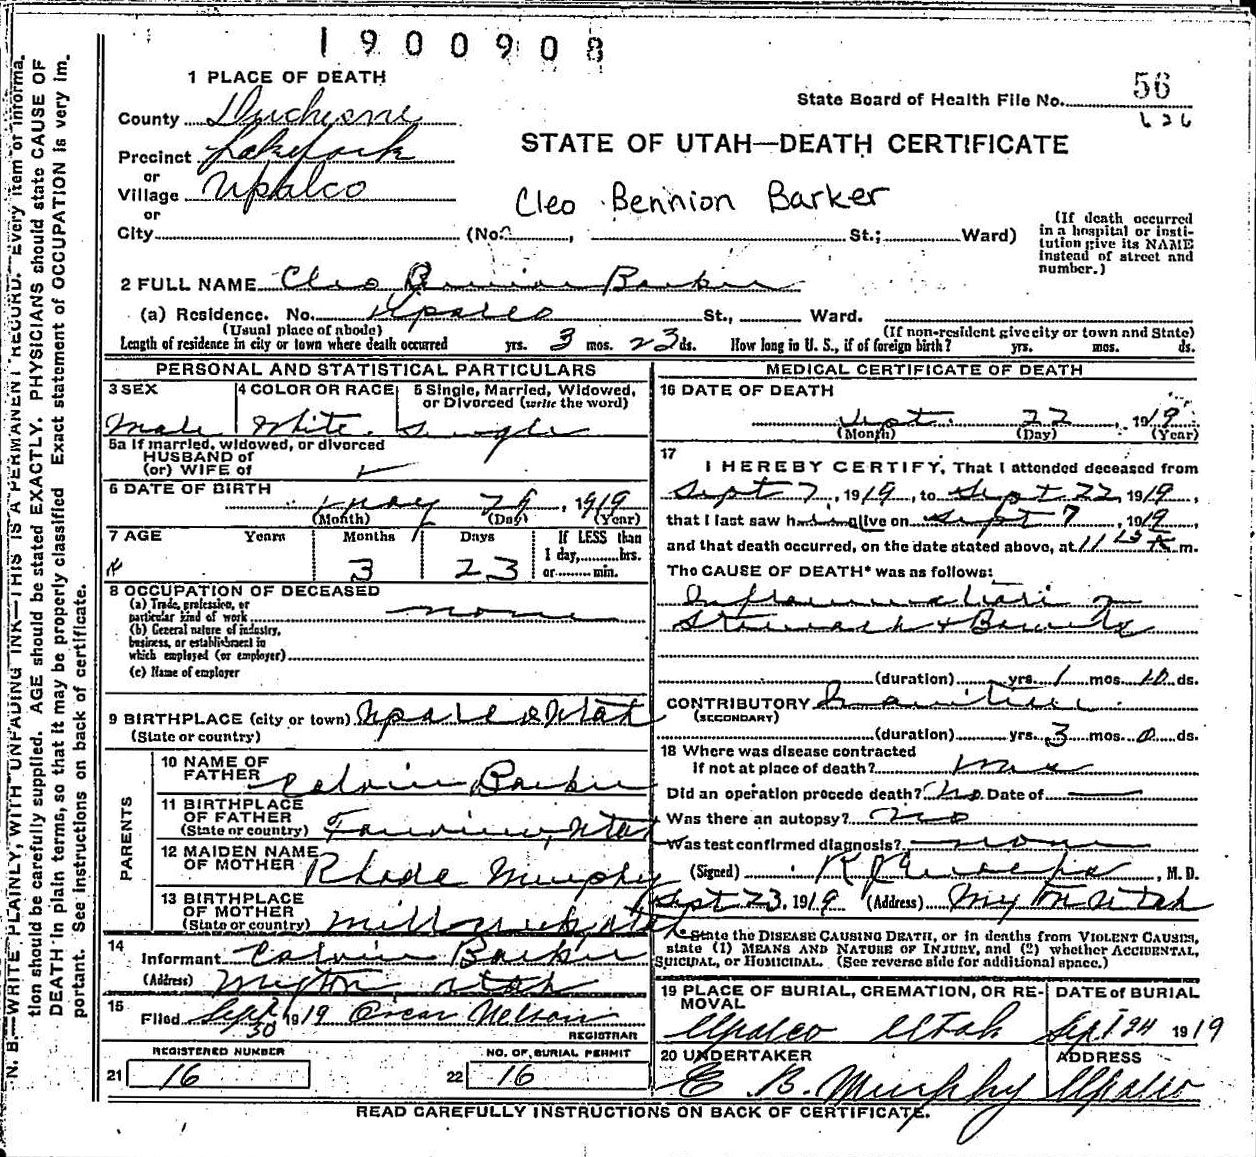 1900908
1 PLACE OF DEATH
State Board of Health File No. 56
626
County Duchesne
STATE OF UTAH—DEATH CERTIFICATE
Precinct Lakefork
or
Village Upalco
Cleo Bennion Barker
or
City (No. , St.; Ward)
(If death occurred
in a hospital or insti-
tution give its NAME
instead of street and
number.)
2 FULL NAME Cleo Bennion Barker
(a) Residence. No. Upalco St., Ward.
(Usual place of abode) (If non-resident give city or town and State)
Length of residence in city or town where death occurred yrs. 3 mos. 23 ds. How long in U. S., if of foreign birth? yrs. mos. ds.
PERSONAL AND STATISTICAL PARTICULARS
3 SEX 4 COLOR OR RACE 5 Single, Married, Widowed,
or Divorced (write the word)
Male White Single
5a If married, widowed, or divorced
HUSBAND of
(or) WIFE of
6 DATE OF BIRTH
May 29, 1919
(Month) (Day) (Year)
7 AGE Years Months Days If LESS than
1 day, hrs.
or min.
3 23
8 OCCUPATION OF DECEASED
(a) Trade, profession, or
particular kind of work none
(b) General nature of industry,
business, or establishment in
which employed (or employer)
(c) Name of employer
9 BIRTHPLACE (city or town) Upalco Utah
(State or country)
PARENTS
10 NAME OF
FATHER Calvin Barker
11 BIRTHPLACE
OF FATHER
(State or country) Fairview, Utah
12 MAIDEN NAME
OF MOTHER Rhode Murphy
13 BIRTHPLACE
OF MOTHER
(State or country) Mill Creek, Utah
14
Informant Calvin Barker
(Address) Myton Utah
15
Filed Sept 30 1919 Oscar Nelson
REGISTRAR
REGISTERED NUMBER NO. OF BURIAL PERMIT
21 16 22 16
MEDICAL CERTIFICATE OF DEATH
16 DATE OF DEATH
Sept. 22, 1919
(Month) (Day) (Year)
17
I HEREBY CERTIFY, That I attended deceased from
Sept 7, 1919, to Sept 22, 1919,
that I last saw him alive on Sept 7, 1919,
and that death occurred, on the date stated above, at 11 A m.
The CAUSE OF DEATH* was as follows:
Inflammation
Stomach + Bowels
(duration) yrs. 1 mos. 10 ds.
CONTRIBUTORY
(SECONDARY)
(duration) yrs. 3 mos. 0 ds.
18 Where was disease contracted
if not at place of death?
Did an operation precede death? No Date of
Was there an autopsy? no
Was test confirmed diagnosis? none
(Signed) , M. D.
Sept 23, 1919 (Address) Myton Utah
* State the DISEASE CAUSING DEATH, or in deaths from VIOLENT CAUSES,
state (1) MEANS AND NATURE OF INJURY, and (2) whether ACCIDENTAL,
SUICIDAL, or HOMICIDAL. (See reverse side for additional space.)
19 PLACE OF BURIAL, CREMATION, OR RE-
MOVAL
DATE of BURIAL
Upalco Utah Sept 24 1919
20 UNDERTAKER ADDRESS
E. B. Murphy Upalco
READ CAREFULLY INSTRUCTIONS ON BACK OF CERTIFICATE.
N. B.—WRITE PLAINLY, WITH UNFADING INK—THIS IS A PERMANENT RECORD. Every item of informa-
tion should be carefully supplied. AGE should be stated EXACTLY. PHYSICIANS should state CAUSE OF
DEATH in plain terms, so that it may be properly classified Exact statement of OCCUPATION is very im-
portant. See instructions on back of certificate.